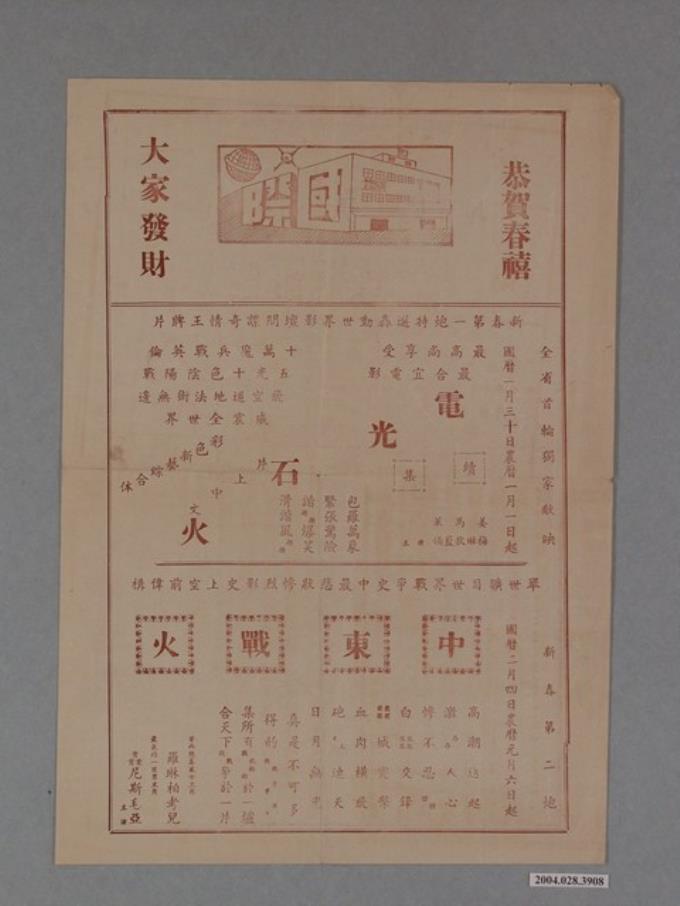 恭賀春禧
國際
大家發財
新春第一炮特選轟動世界影壇間諜奇情王牌片
全省首輪獨家獻映
國曆一月三十日農曆一月一日起
最高尚享受
最合宜電影
電光石火
續集
十萬魔兵戰英倫
五光十色陰陽戰
飛空遁地法術無邊
威震全世界
彩色新藝綜合体
片上中文
包羅萬象
緊張驚險
諧爆笑
滑諧風
姜梅
馬
主演
舉世矚目世界戰爭史中最悲壯慘烈影史上空前偉構
新春第二炮
國曆二月四日農曆元月六日起
中東戰火
高潮迭起
激人心
慘不忍
白交鋒
血肉橫飛
砲連天
日月無光
真是不可多
得的
集所有於一爐
合天下爭於一片
羅琳柏考兒
尼斯毛亞
主演
2004.028.3908